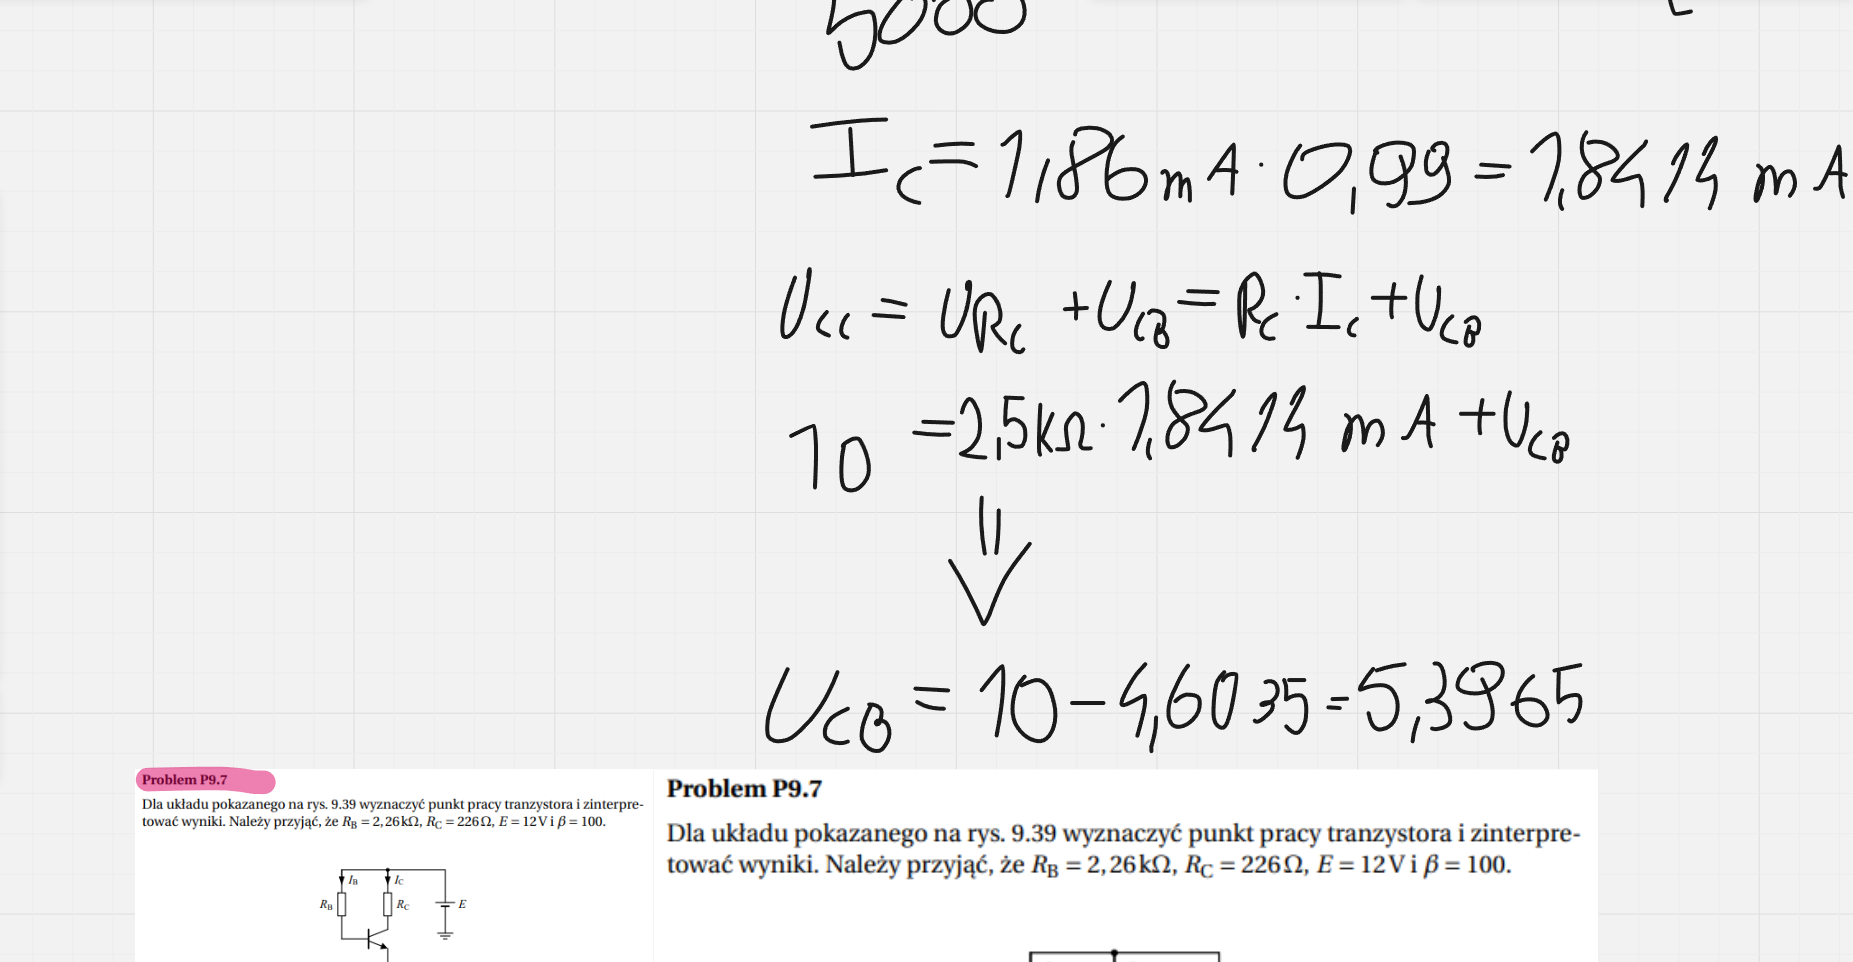 5000
I_C = 1,86 mA · 0,99 = 1,8414 mA
U_CC = U_RC + U_CB = R_C · I_C + U_CB
10 = 2,5 kΩ · 1,8414 mA + U_CB
⇓
U_CB = 10 - 4,6035 = 5,3965
Problem P9.7
Dla układu pokazanego na rys. 9.39 wyznaczyć punkt pracy tranzystora i zinterpre-
tować wyniki. Należy przyjąć, że R_B = 2,26 kΩ, R_C = 226 Ω, E = 12 V i β = 100.
I_B I_C
R_B R_C E
Problem P9.7
Dla układu pokazanego na rys. 9.39 wyznaczyć punkt pracy tranzystora i zinterpre-
tować wyniki. Należy przyjąć, że R_B = 2,26 kΩ, R_C = 226 Ω, E = 12 V i β = 100.